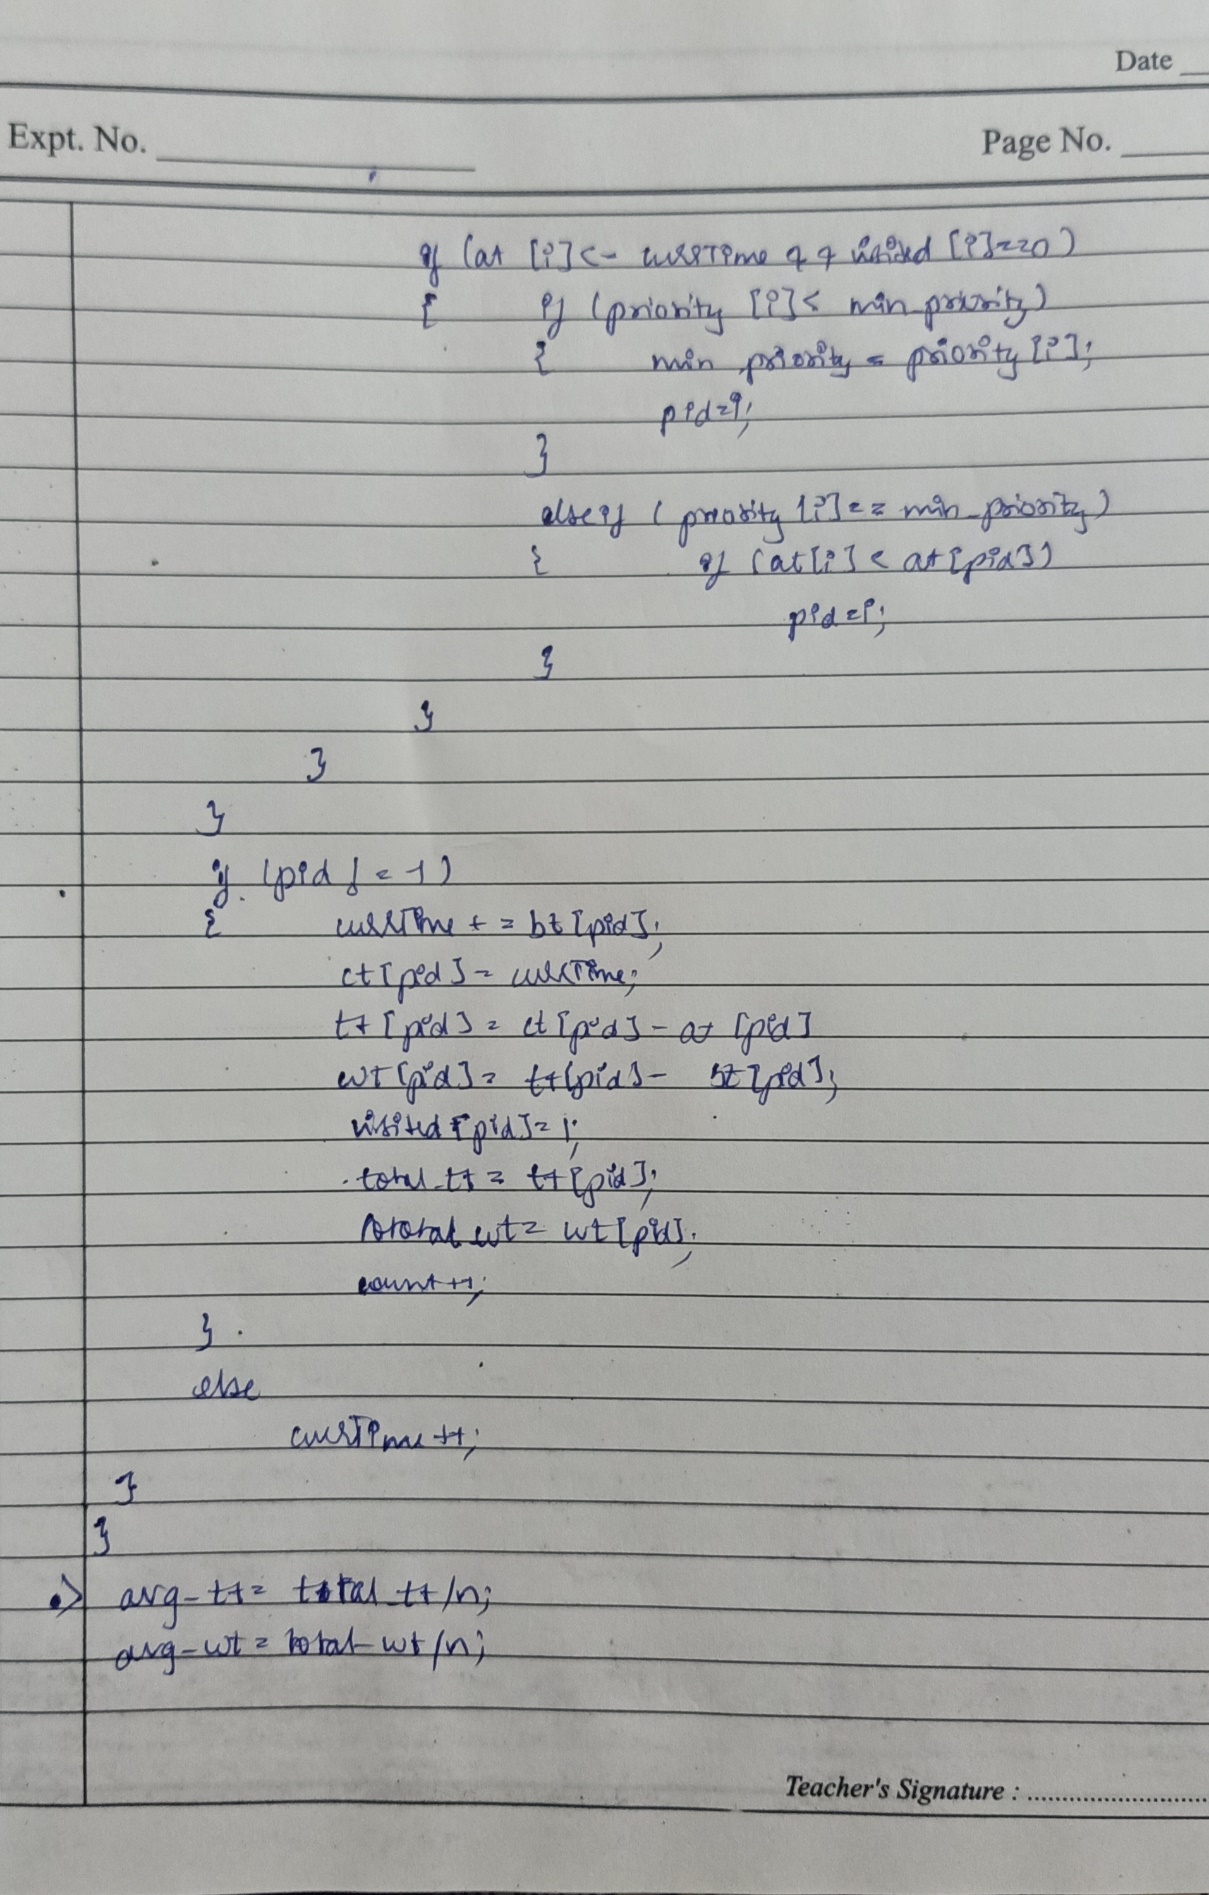 Date
Expt. No.
Page No.
if (at [i] <= currTime && visited [i]==0)
{ if (priority [i] < min_priority)
{ min_priority = priority [i];
pid=i;
}
else if ( priority [i] == min_priority)
{ if (at[i] < at[pid])
pid=i;
}
}
}
}
if (pid != -1)
{ currTime += bt [pid];
ct[pid] = currTime;
tt [pid] = ct [pid] - at [pid]
wt [pid] = tt[pid] - bt [pid];
visited [pid] = 1;
total_tt = tt[pid];
total_wt = wt[pid];
count++;
}
else
currTime ++;
}
}
•> avg-tt= total_tt/n;
avg-wt = total-wt/n;
Teacher's Signature : ............................